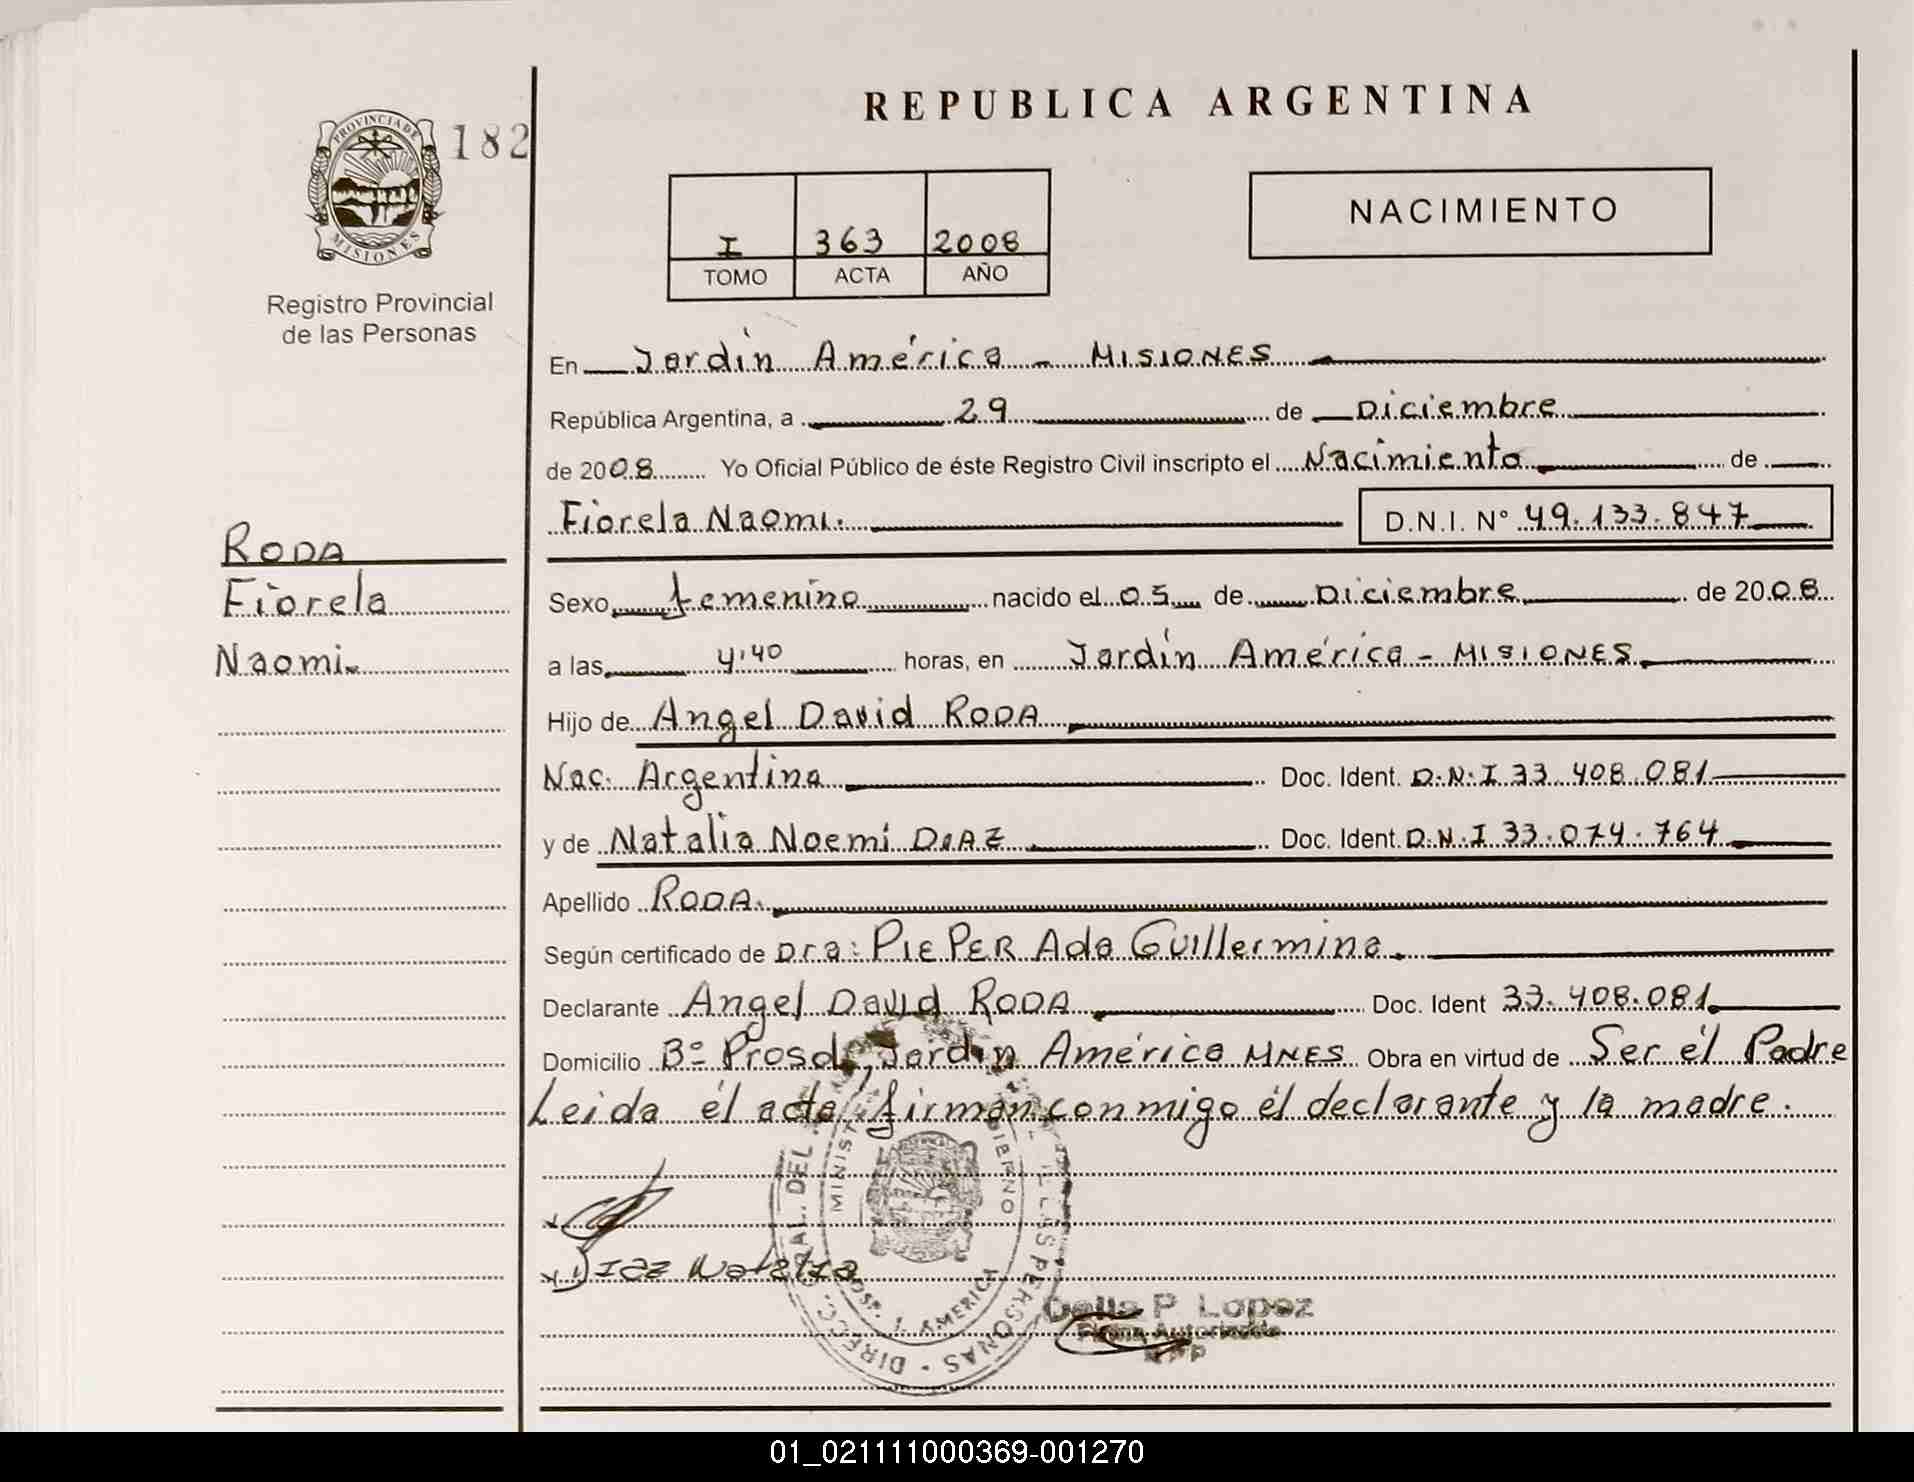 REPUBLICA ARGENTINA
PROVINCIA DE
MISIONES
182
Registro Provincial
de las Personas
I 363 2008
TOMO ACTA AÑO
NACIMIENTO
En Jardín América - MISIONES
República Argentina, a 29 de Diciembre
de 2008 Yo Oficial Público de éste Registro Civil inscripto el Nacimiento de
Fiorela Naomi. D.N.I. N° 49.133.847
RODA
Fiorela
Naomi.
Sexo femenino nacido el 05 de Diciembre de 2008
a las 4:40 horas, en Jardín América - MISIONES
Hijo de Angel David RODA
Nac. Argentina Doc. Ident. D.N.I 33.408.081
y de Natalia Noemí DIAZ Doc. Ident. D.N.I 33.074.764
Apellido RODA.
Según certificado de Dra: PIEPER Ada Guillermina.
Declarante Angel David RODA Doc. Ident 33.408.081
Domicilio B° Prosol, Jardín América MNES Obra en virtud de Ser él Padre
Leida él acta, firman conmigo él declarante y la madre.
Diaz Natalia
HOSP. J. AMERICA
P. Lopez
Firma Autorizada
01_021111000369-001270